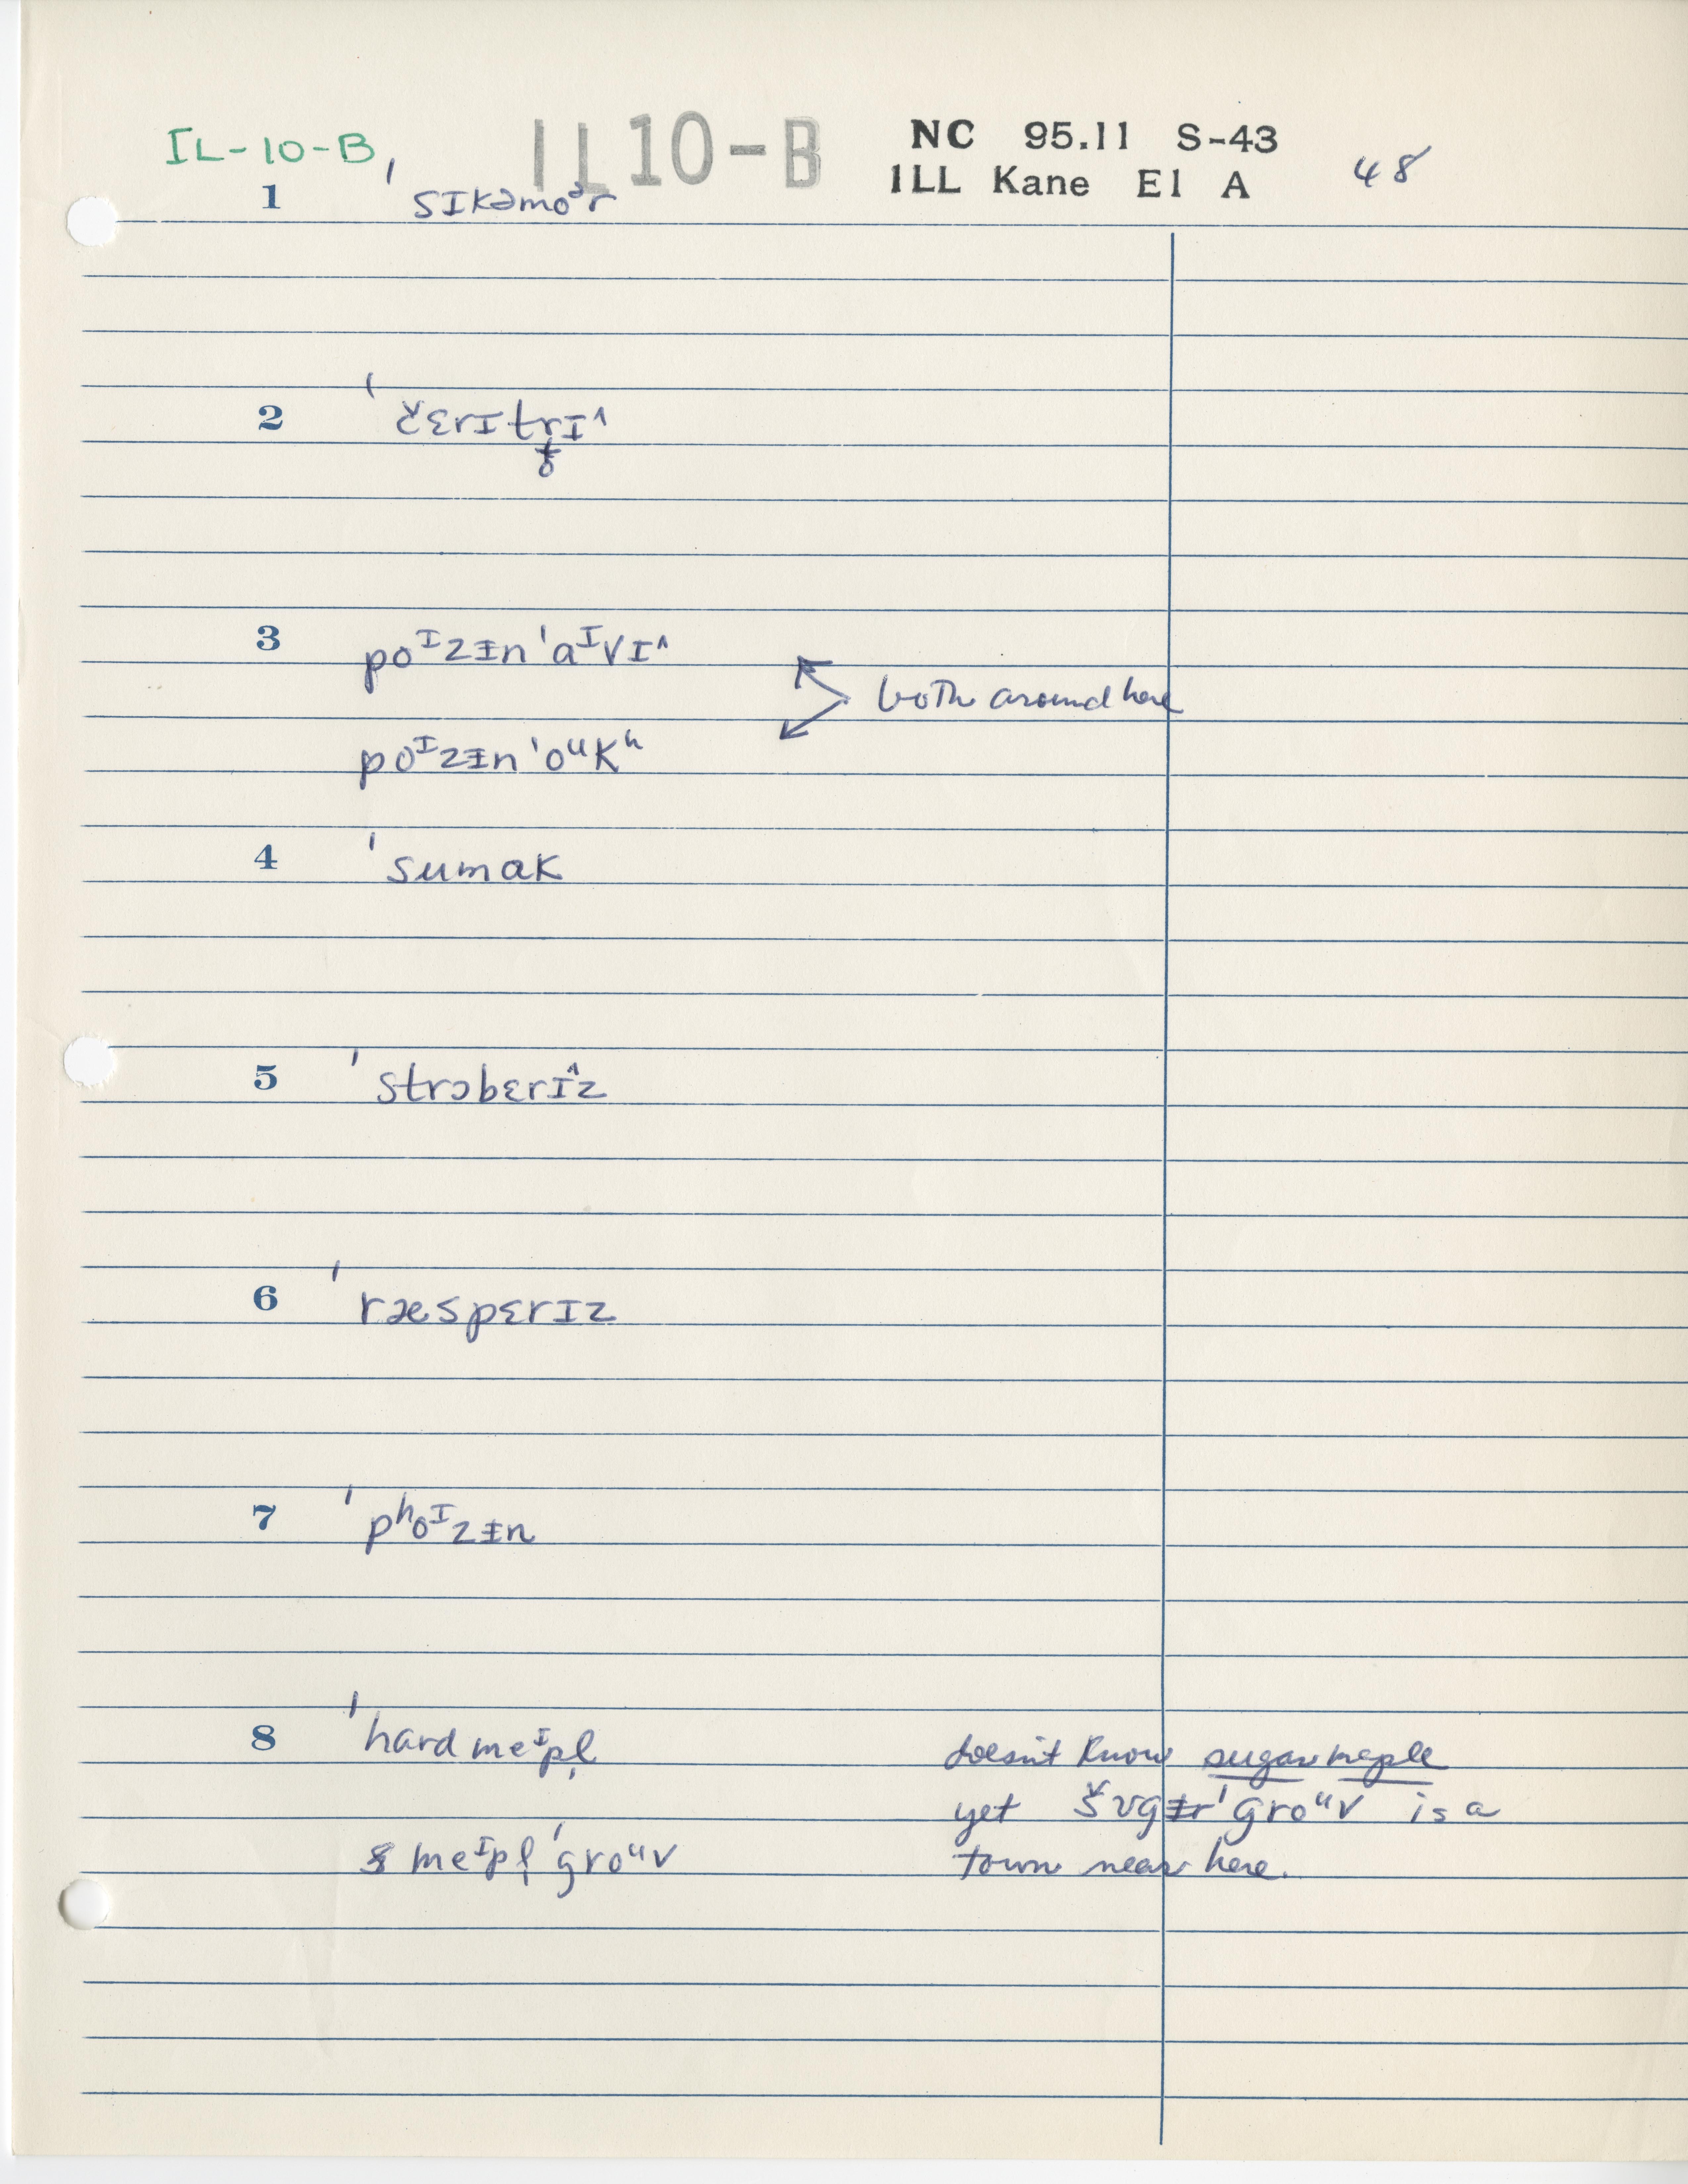 IL-10-B IL10-B NC 95.11 S-43
ILL Kane El A 48
1 ˈsɪkəmoᵊr
2 ˈčɛrɪtrɪ˄
3 poᴵzɨn ˈaᴵvɪ˄
both around here
poᴵzɨn ˈoᵘkʰ
4 ˈsumak
5 ˈstrɔbɛrɪ˄z
6 ˈræspɛrɪz
7 ˈpʰoᴵzɨn
8 ˈhard meᴵpl̩ doesn't know sugar maple
yet šʊgɨr ˈgroᵘv is a
meᴵpl̩ ˈgroᵘv town near here.